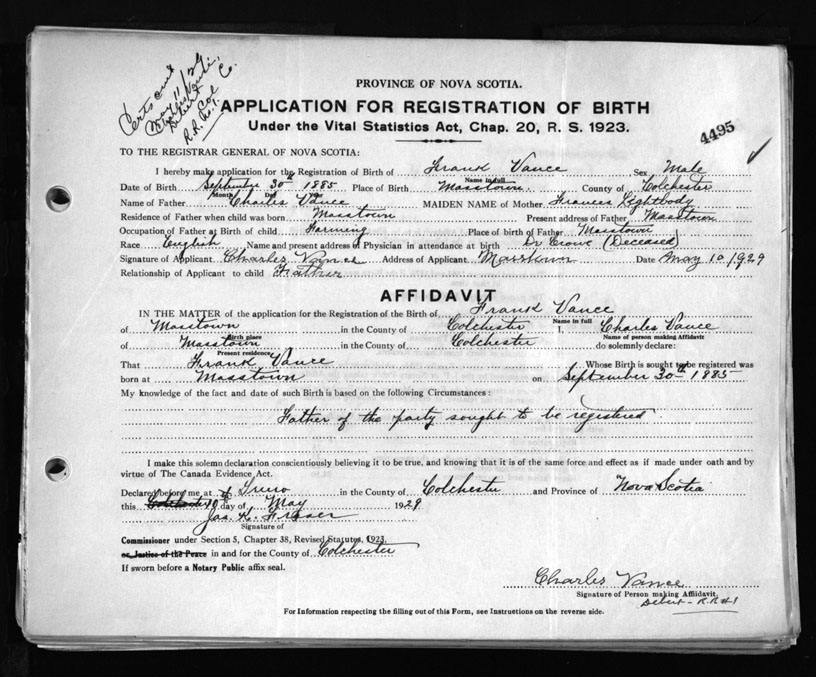 Cert sent
May 11/29
Charles Vance,
Debert
R.R. No. 1. Col Co.
PROVINCE OF NOVA SCOTIA.
APPLICATION FOR REGISTRATION OF BIRTH
Under the Vital Statistics Act, Chap. 20, R. S. 1923.
4495
TO THE REGISTRAR GENERAL OF NOVA SCOTIA:
I hereby make application for the Registration of Birth of Frank Vance Sex Male
Name in full
Date of Birth September 30th 1885 Place of Birth Masstown County of Colchester
Month Day Year
Name of Father Charles Vance MAIDEN NAME of Mother Frances Lightbody
Residence of Father when child was born Masstown Present address of Father Masstown
Occupation of Father at Birth of child Farming Place of birth of Father Masstown
Race English Name and present address of Physician in attendance at birth Dr Crowe (Deceased)
Signature of Applicant Charles Vance Address of Applicant Masstown Date May 10 1929
Relationship of Applicant to child Father
AFFIDAVIT
IN THE MATTER of the application for the Registration of the Birth of Frank Vance
Name in full
of Masstown in the County of Colchester I, Charles Vance
Birth place Name of person making Affidavit
of Masstown in the County of Colchester do solemnly declare:
Present residence
That Frank Vance Whose Birth is sought to be registered was
born at Masstown on September 30th 1885
My knowledge of the fact and date of such Birth is based on the following Circumstances:
Father of the party sought to be registered
I make this solemn declaration conscientiously believing it to be true, and knowing that it is of the same force and effect as if made under oath and by
virtue of The Canada Evidence Act.
Declared before me at Truro in the County of Colchester and Province of Nova Scotia
this 10 day of May 1929
Jas. K. Fraser
Signature of
Commissioner under Section 5, Chapter 38, Revised Statutes, 1923,
or Justice of the Peace in and for the County of Colchester
If sworn before a Notary Public affix seal.
Charles Vance
Signature of Person making Affidavit.
Debert - R.R #1
For Information respecting the filling out of this Form, see Instructions on the reverse side.